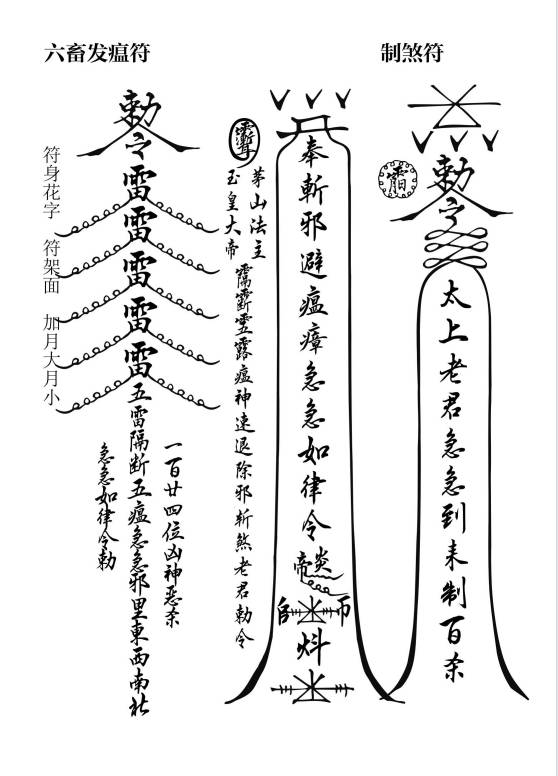 六畜发瘟符
制煞符
勅令
太上老君急急到来制百杀
奉斬邪避瘟瘴急急如律令
炎帝
茅山法主
玉皇大帝
瘟神速退除邪斬煞老君勅令
勅令雷雷雷雷雷五雷隔断五瘟急急邪里東西南北
一百廿四位凶神惡杀
急急如律令勅
符身花字 符架面 加月大月小